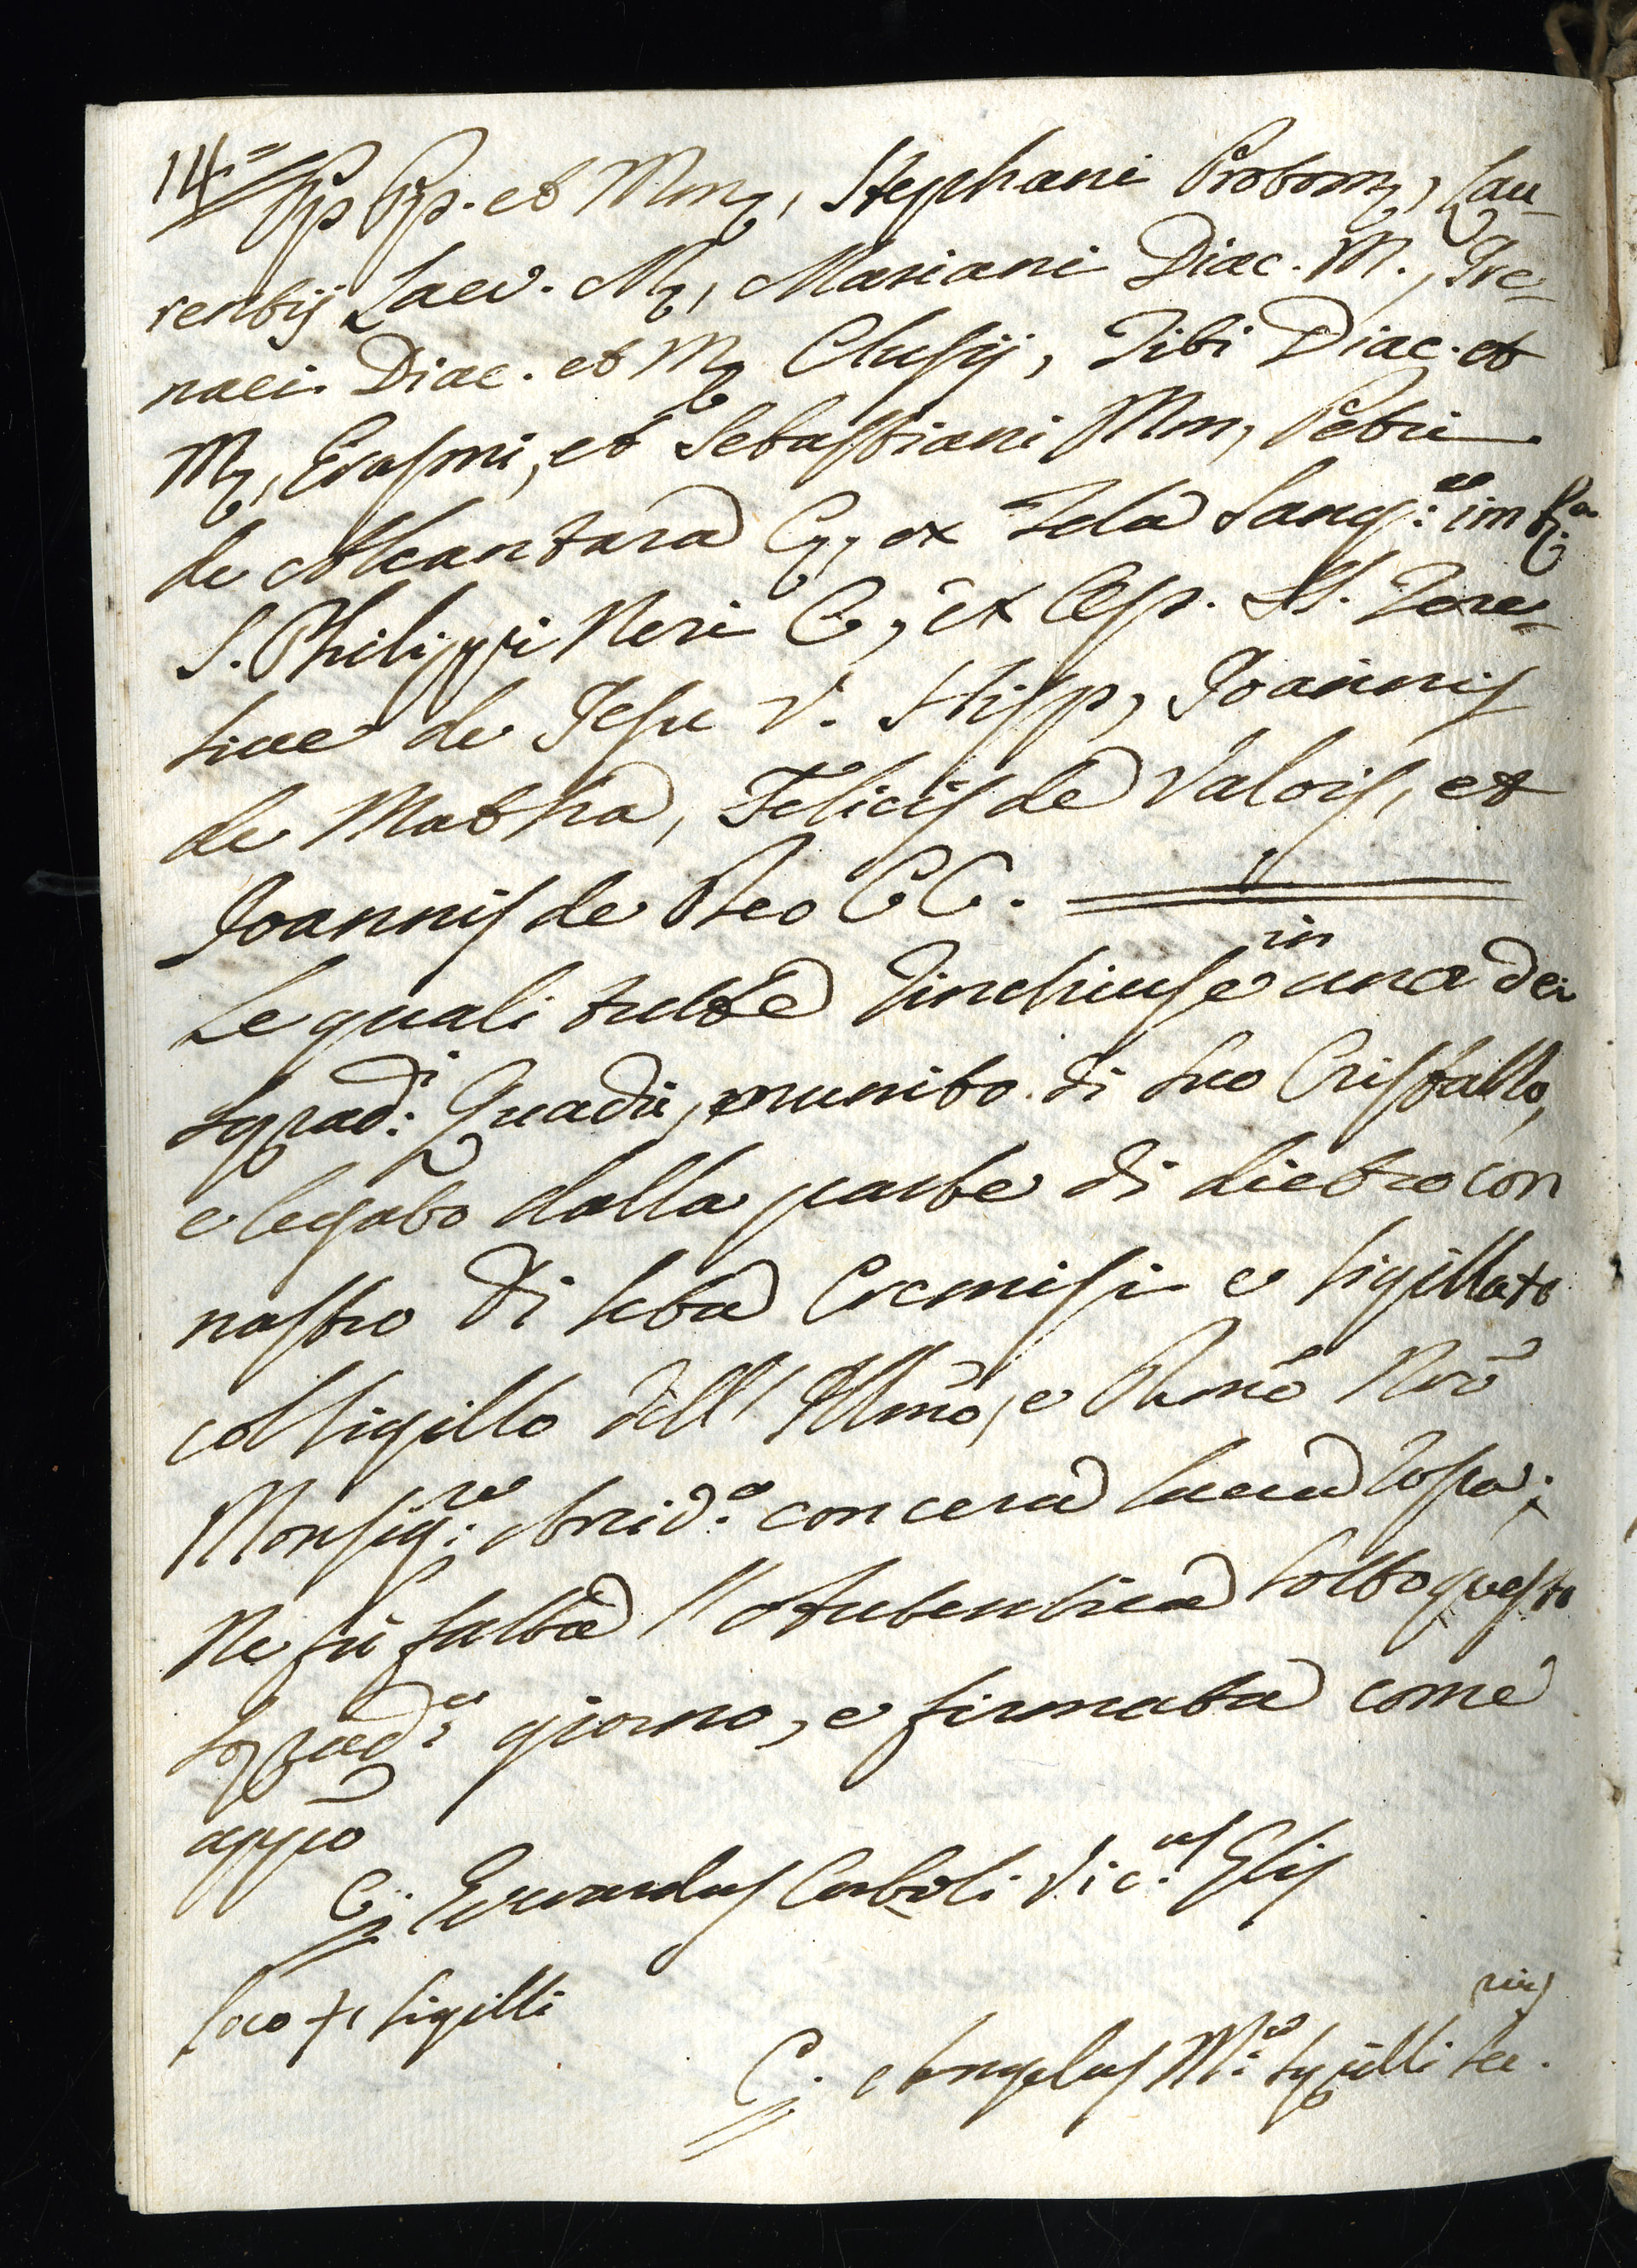 14.
Pp. Pp. et Mm., Stephani Protom., Lau-
rentij Laev. M., Mariani Diac. M., Ire-
naei Diac. et M. Clusij, Titi Diac. et
M., Erasmi, et Sebastiani Mm, Petri
de Alcantara C., ex Tela Sang.e imb.ta
S. Philippi Neri C., ex Oss. SS. Tere-
siae de Jesu V. Hisp, Joannis
de Matha, Felicis de Valois, et
Joannis de Deo C C.
Le quali tutte rinchiuse in una dei
soprad.i Quadri, munito di suo Cristallo,
e legato dalla parte di dietro con
nastro di seta Cremisi e sigillato
col sigillo dell' Illmo, e Rmo Nro
Monsig.re Arcid.o con cera lacca rossa.
Ne fù fatta l'Autentica sotto questo
soprad.o giorno, e firmata come
appo
C. Gerardus Carboli Vic.us Glis
Loco + sigilli
C. Angelus M.a Squilli Sec.rius